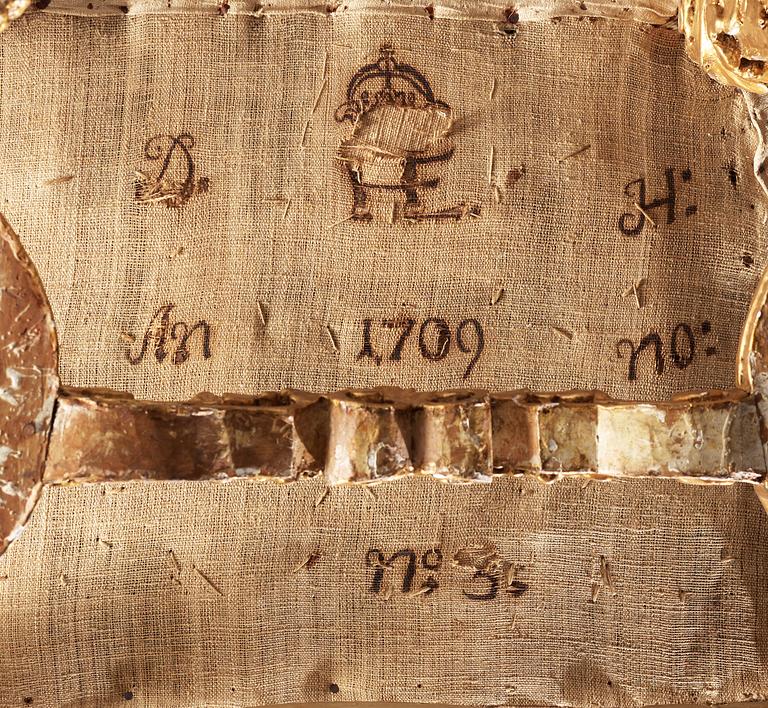 D. E H:
An 1709 no:
No 3: